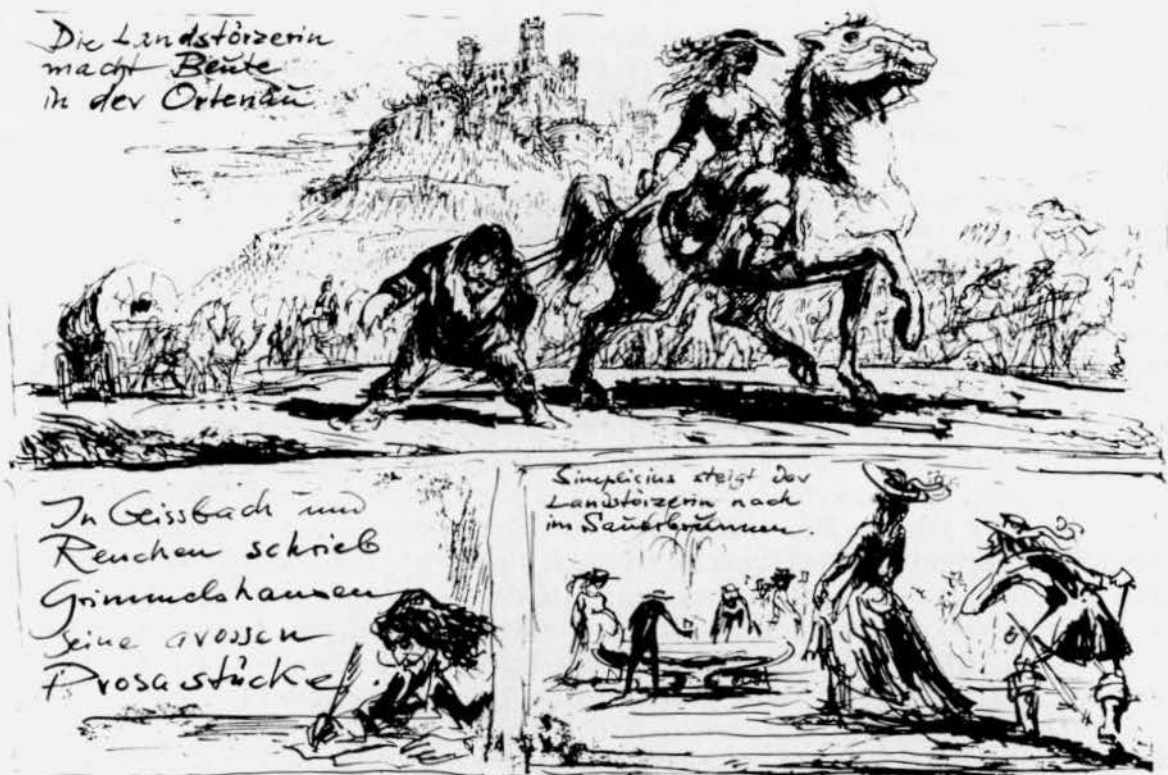 Die Landstörzerin
macht Beute
in der Ortenau
In Geissbach und
Renchen schrieb
Grimmelshausen
seine grossen
Prosastücke.
Simplicius steigt der
Landstörzerin nach
im Sauerbrunnen.